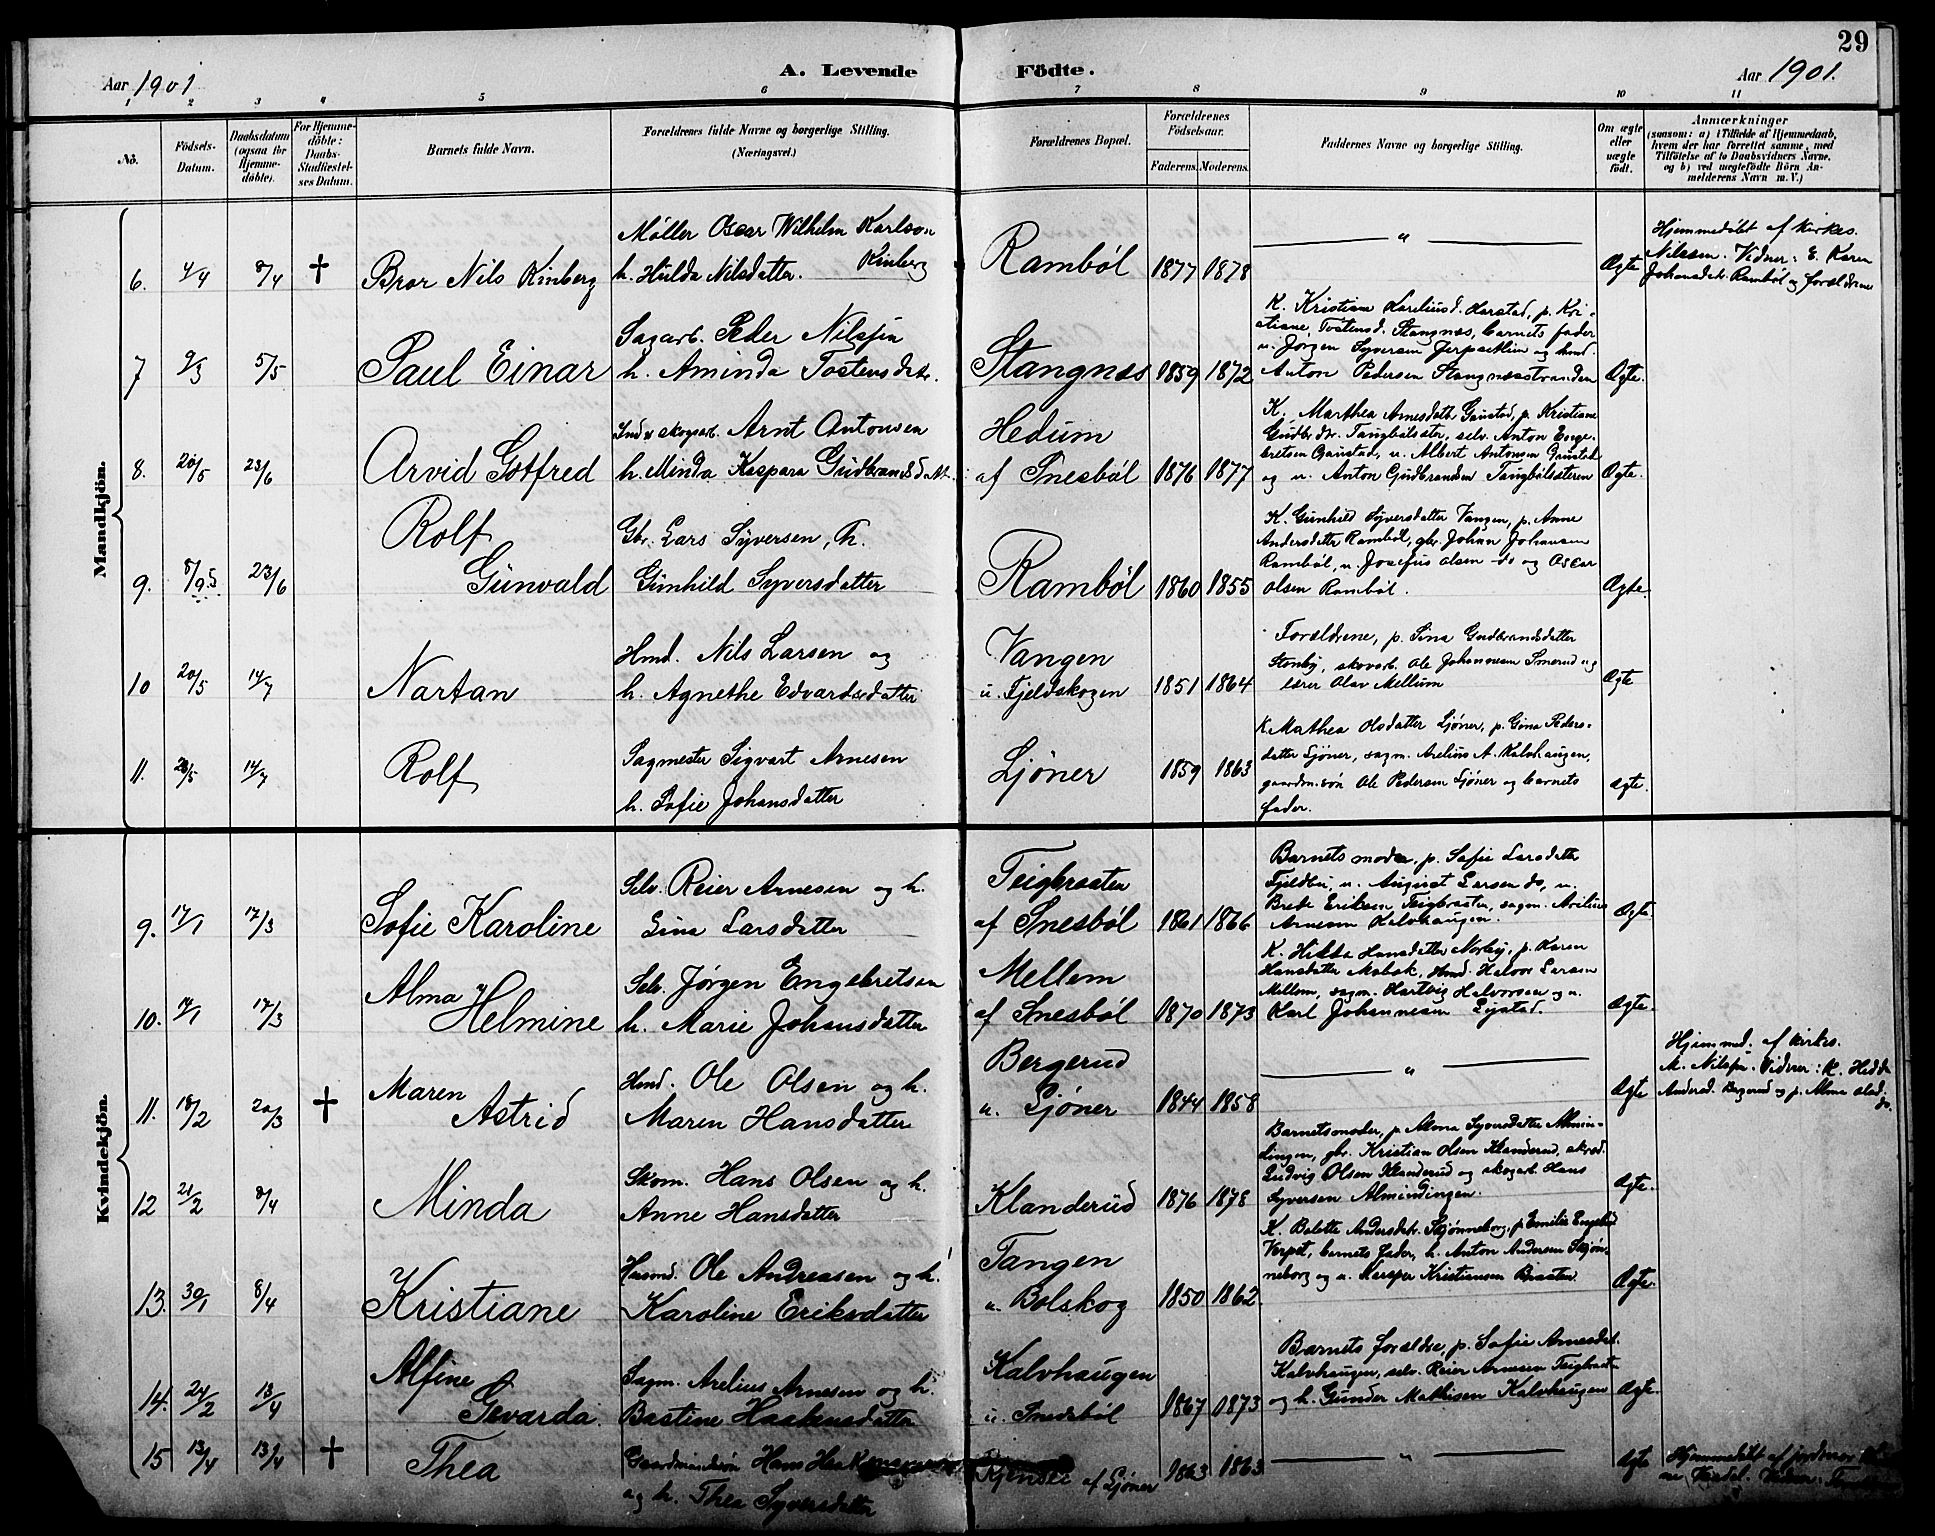 29
Aar 1901
A. Levende Födte.
Aar 1901.
1 2 3 4 5 6 7 8 9 10 11
No.
Födsels-Datum.
Daabsdatum (ogsaa for Hjemme-döbte).
For Hjemme-döbte: Daabs-Stadfæstel-ses Datum.
Barnets fulde Navn.
Forældrenes fulde Navne og borgerlige Stilling. (Næringsvei.)
Forældrenes Bopæl.
Forældrenes Födselsaar.
Faderens. Moderens.
Faddernes Navne og borgerlige Stilling.
Om ægte eller uægte födt.
Anmærkninger
(saasom: a) i Tilfælde af Hjemmedaab,
hvem der har forrettet samme, med
Tilföielse af to Daabsvidners Navne,
og b) ved uægtefödte Börn An-
melderens Navn m. V.)
Mandkjön.
Møller Oscar Wilhelm Karlson Kinberg
6. 4/4 8/4 † Bror Nils Kinberg h. Hulda Nilsdatter. Ramböl 1877 1878 — " — Ægte
Hjemmedöbt af kirkes.
Nilssen. Vidner: E. Karen
Johansdtr. Ramböl og forældrene
Sagarb. Peder Nilssen
7 9/3 5/5 Paul Einar h. Aminda Tostensdatr. Stangnæs 1859 1872 Ægte.
K. Kristiane Kareliusd. Harstad, p. Kri-
stiane Tostensd. Stangnæs, barnets fader
u. Jörgen Syversen Jerpsetlien og hmd.
Anton Pedersen Stangnæsstranden
Ind. & skogsarb. Arnt Antonsen Hedum
8. 20/5 23/6 Arvid Gotfred h. Minda Kaspara Gudbrandsdatt. af Snesböl 1876 1877 Ægte.
K. Marthea Arnesdatter Gaustad, p. Kristiane
Gudbrdtr. Taugbölsæter, selv. Anton Enge-
bretsen Gaustad, u. Albert Antonsen Gaustad
og u. Anton Gudbrandsen Taugbölsæteren
Rolf Gbr. Lars Syversen, h.
9. 8/5 23/6 Gunvald Gunhild Syversdatter Ramböl 1860 1855 Ægte.
K. Gunhild Syversdatter Vangen, p. Anne
Andersdatter Ramböl, gbr. Johan Johansen
Ramböl, u. Josefus Olsen do og Oscar
Olsen Ramböl.
Hmd. Nils Larsen og Vangen
10 20/5 14/7 Nartan h. Agnethe Edvardsdatter u. Fjeldskogen 1851 1864 Ægte
Forældrene, p. Sina Gudbrandsdatter
Stenby, skovarb. Ole Johannesen Smerud og
lærer Olav Mellum
Sagmester Sigvart Arnesen
11. 28/5 14/7 Rolf h. Sofie Johansdatter Ljöner 1859 1863 Ægte.
K. Mathea Olsdatter Ljöner, p. Gina Peders-
datter Ljöner, sagm. Arelius A. Kalvhaugen,
gaardm.sön Ole Pedersen Ljöner og barnets
fader.
Kvindekjön.
Selv. Reier Arnesen og h. Teigbraaten
9. 17/1 17/3 Sofie Karoline Gina Larsdatter af Snesböl 1861 1866 Ægte.
Barnets moder, p. Sofie Larsdatter
Fjeldbu, u. August Larsen do, u.
Brede Eriksen Teigbraaten, sagm. Arelius
Arnesen Kalvhaugen.
Alma Selv. Jørgen Engebretsen Mellem
10. 14/1 17/3 Helmine h. Marie Johansdatter af Snesböl 1870 1873 Ægte.
K. Hilda Hansdatter Norby, p. Karen
Hansdatter Mobæk, Hmd. Halvor Larsen
Mellem, sagm. Hartvig Halvorsen og u.
Karl Johannesen Lystad.
Maren Hmd. Ole Olsen og h. Bergerud
11. 18/2 20/3 † Astrid Maren Hansdatter u. Ljöner 1844 1858 — " — Ægte
Hjemmed. af kirkes.
M. Nilsen. Vidner: K. Hedda
Andersd. Bergerud og p. Alma Olsd. do.
Skom. Hans Olsen og h.
12 21/2 8/4 Minda Anne Hansdatter Klanderud 1876 1878 Ægte.
Barnetsmoder, p. Alma Syversdatter Almin-
dingen, gbr. Kristian Olsen Klanderud, skræd.
Ludvig Olsen Klanderud og skogarb. Hans
Syversen Almindingen.
Husmd. Ole Andreasen og h. Tangen
13. 30/1 8/4 Kristiane Karoline Eriksdatter u. Bolskog 1850 1862. Ægte.
K. Belette Andersdatr. Skjönneborg, p. Emilie
Verpet, barnets fader, h. Anton Andersen Skjön-
neborg og u. Kasper Kristiansen Braaten.
Alfine Sagm. Arelius Arnesen og h. Kalvhaugen
14. 24/2 13/4 Gevarda. Bastine Haakensdatter u. Snesböl 1867 1873 Ægte.
Barnets forældre, p. Sofie Arnesdat.
Kalvhaugen, selv. Reier Arnesen Teigbraat.
og h. Gunder Mathisen Kalvhaugen
15 13/4 13/4 † Thea Gaardmandssön Hans
og h. Thea Syversdatter af Ljöner 1863 1863 — " — Ægte
Hjemmedöbt af jordmor